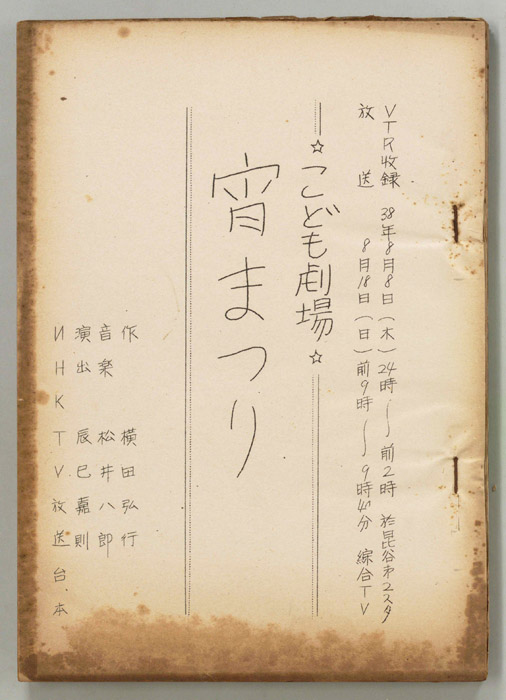 VTR収録 38年8月8日(木)24時〜前2時 於昆谷オ2スタ
放送 8月18日(日)前9時〜9時40分 綜合TV
☆こども劇場☆
宵まつり
作 横田弘行
音楽 松井八郎
演出 辰巳嘉則
NHKTV放送台本